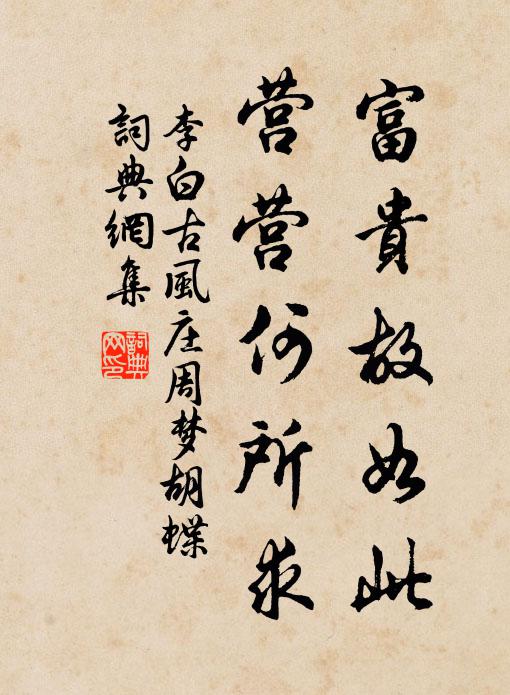 富貴故如此
营营何所求
李白古風庄周梦胡蝶
詞典網集
詞典
网印